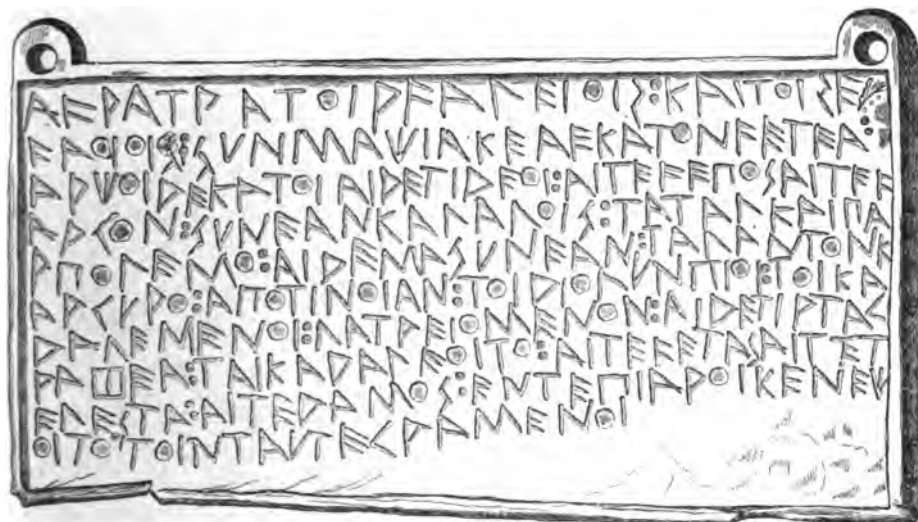 ΑϜΡΑΤΡΑΤΟΙΡϜΑΛΕΙΟΙΣ:ΚΑΙΤΟΙΣΕΥ
ϜΑΟΙΟΙΣ:ΣΥΝΜΑΨΙΑΚΕΑΕΚΑΤΟΝϜΕΤΕΑ:
ΑΡΨΟΙΔΕΚΑΤΟΙΑΙΔΕΤΙΔΕΟΙ:ΑΙΤΕϜΕΠΟΣΑΙΤΕϜ
ΑΡΓΟΝ:ΣΥΝΕΑΝΚΑΛΑΛΟΙΣ:ΤΑΤΑΛΚΑΙΠΑ
ΡΠΟΛΕΜΟ:ΑΙΔΕΜΑΣΥΝΕΑΝ:ΤΑΛΑΝΤΟΝΚ
ΑΡΓΥΡΟ:ΑΠΟΤΙΝΟΙΑΝ:ΤΟΙΔΙΟΛΥΝΠΙΟΙ:ΤΟΙΚΑ
ΔΑΛΕΜΕΝΟΙ:ΛΑΤΡΕΙΟΜΕΝΟΝ:ΑΙΔΕΤΙΡΤΑΓ
ΡΑΦΕΑ:ΤΑΙΚΑΔΑΛΕΟΙΤΟ:ΑΙΤΕϜΕΤΑΣΑΙΤΕΤ
ΕΛΕΣΤΑ:ΑΙΤΕΔΑΜΟΣ:ΕΝΤΕΠΙΑΡΟΙΚΕΝΕΨ
ΟΙΤΟ:ΤΟΙΝΤΑΥΤΕΓΡΑΜΕΝΟΙ